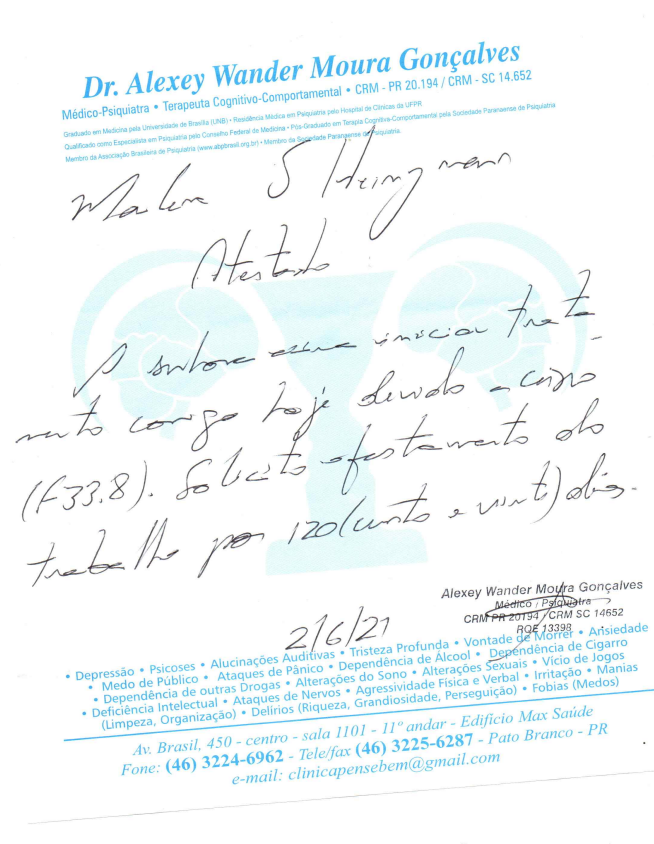 Dr. Alexey Wander Moura Gonçalves
Médico-Psiquiatra • Terapeuta Cognitivo-Comportamental • CRM - PR 20.194 / CRM - SC 14.652
Graduado em Medicina pela Universidade de Brasília (UNB) • Residência Médica em Psiquiatria pelo Hospital de Clínicas da UFPR
Qualificado como Especialista em Psiquiatria pelo Conselho Federal de Medicina • Pós-Graduado em Terapia Cognitivo-Comportamental pela Sociedade Paranaense da Psiquiatria
Membro da Associação Brasileira de Psiquiatria (www.abpbrasil.org.br) • Membro da Sociedade Paranaense de Psiquiatria.
S
Atestado
A senhora iniciou trata
mento comigo hoje devido a
(F33.8). Solicito afastamento do
trabalho por 120 (cento e vinte) dias.
Alexey Wander Moura Gonçalves
Médico / Psiquiatra
CRM PR 20194 / CRM SC 14652
RQE 13398
2/6/21
• Depressão • Psicoses • Alucinações Auditivas • Tristeza Profunda • Vontade de Morrer • Ansiedade
• Medo de Público • Ataques de Pânico • Dependência de Álcool • Dependência de Cigarro
• Dependência de outras Drogas • Alterações do Sono • Alterações Sexuais • Vício de Jogos
• Deficiência Intelectual • Ataques de Nervos • Agressividade Física e Verbal • Irritação • Manias
(Limpeza, Organização) • Delírios (Riqueza, Grandiosidade, Perseguição) • Fobias (Medos)
Av. Brasil, 450 - centro - sala 1101 - 11º andar - Edifício Max Saúde
Fone: (46) 3224-6962 - Tele/fax (46) 3225-6287 - Pato Branco - PR
e-mail: clinicapensebem@gmail.com